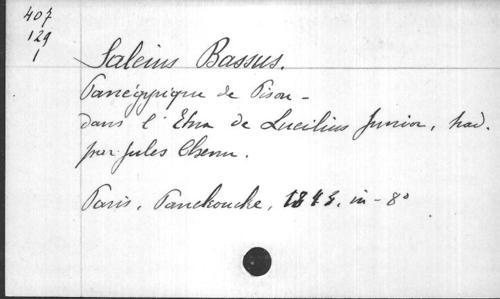 407
129
1
Saleius Bassus.
Panégyrique de Pison -
dans l'Etna de Lucilius Junior, trad.
par Jules Chenu.
Paris, Panckouche, 1845, in-8°